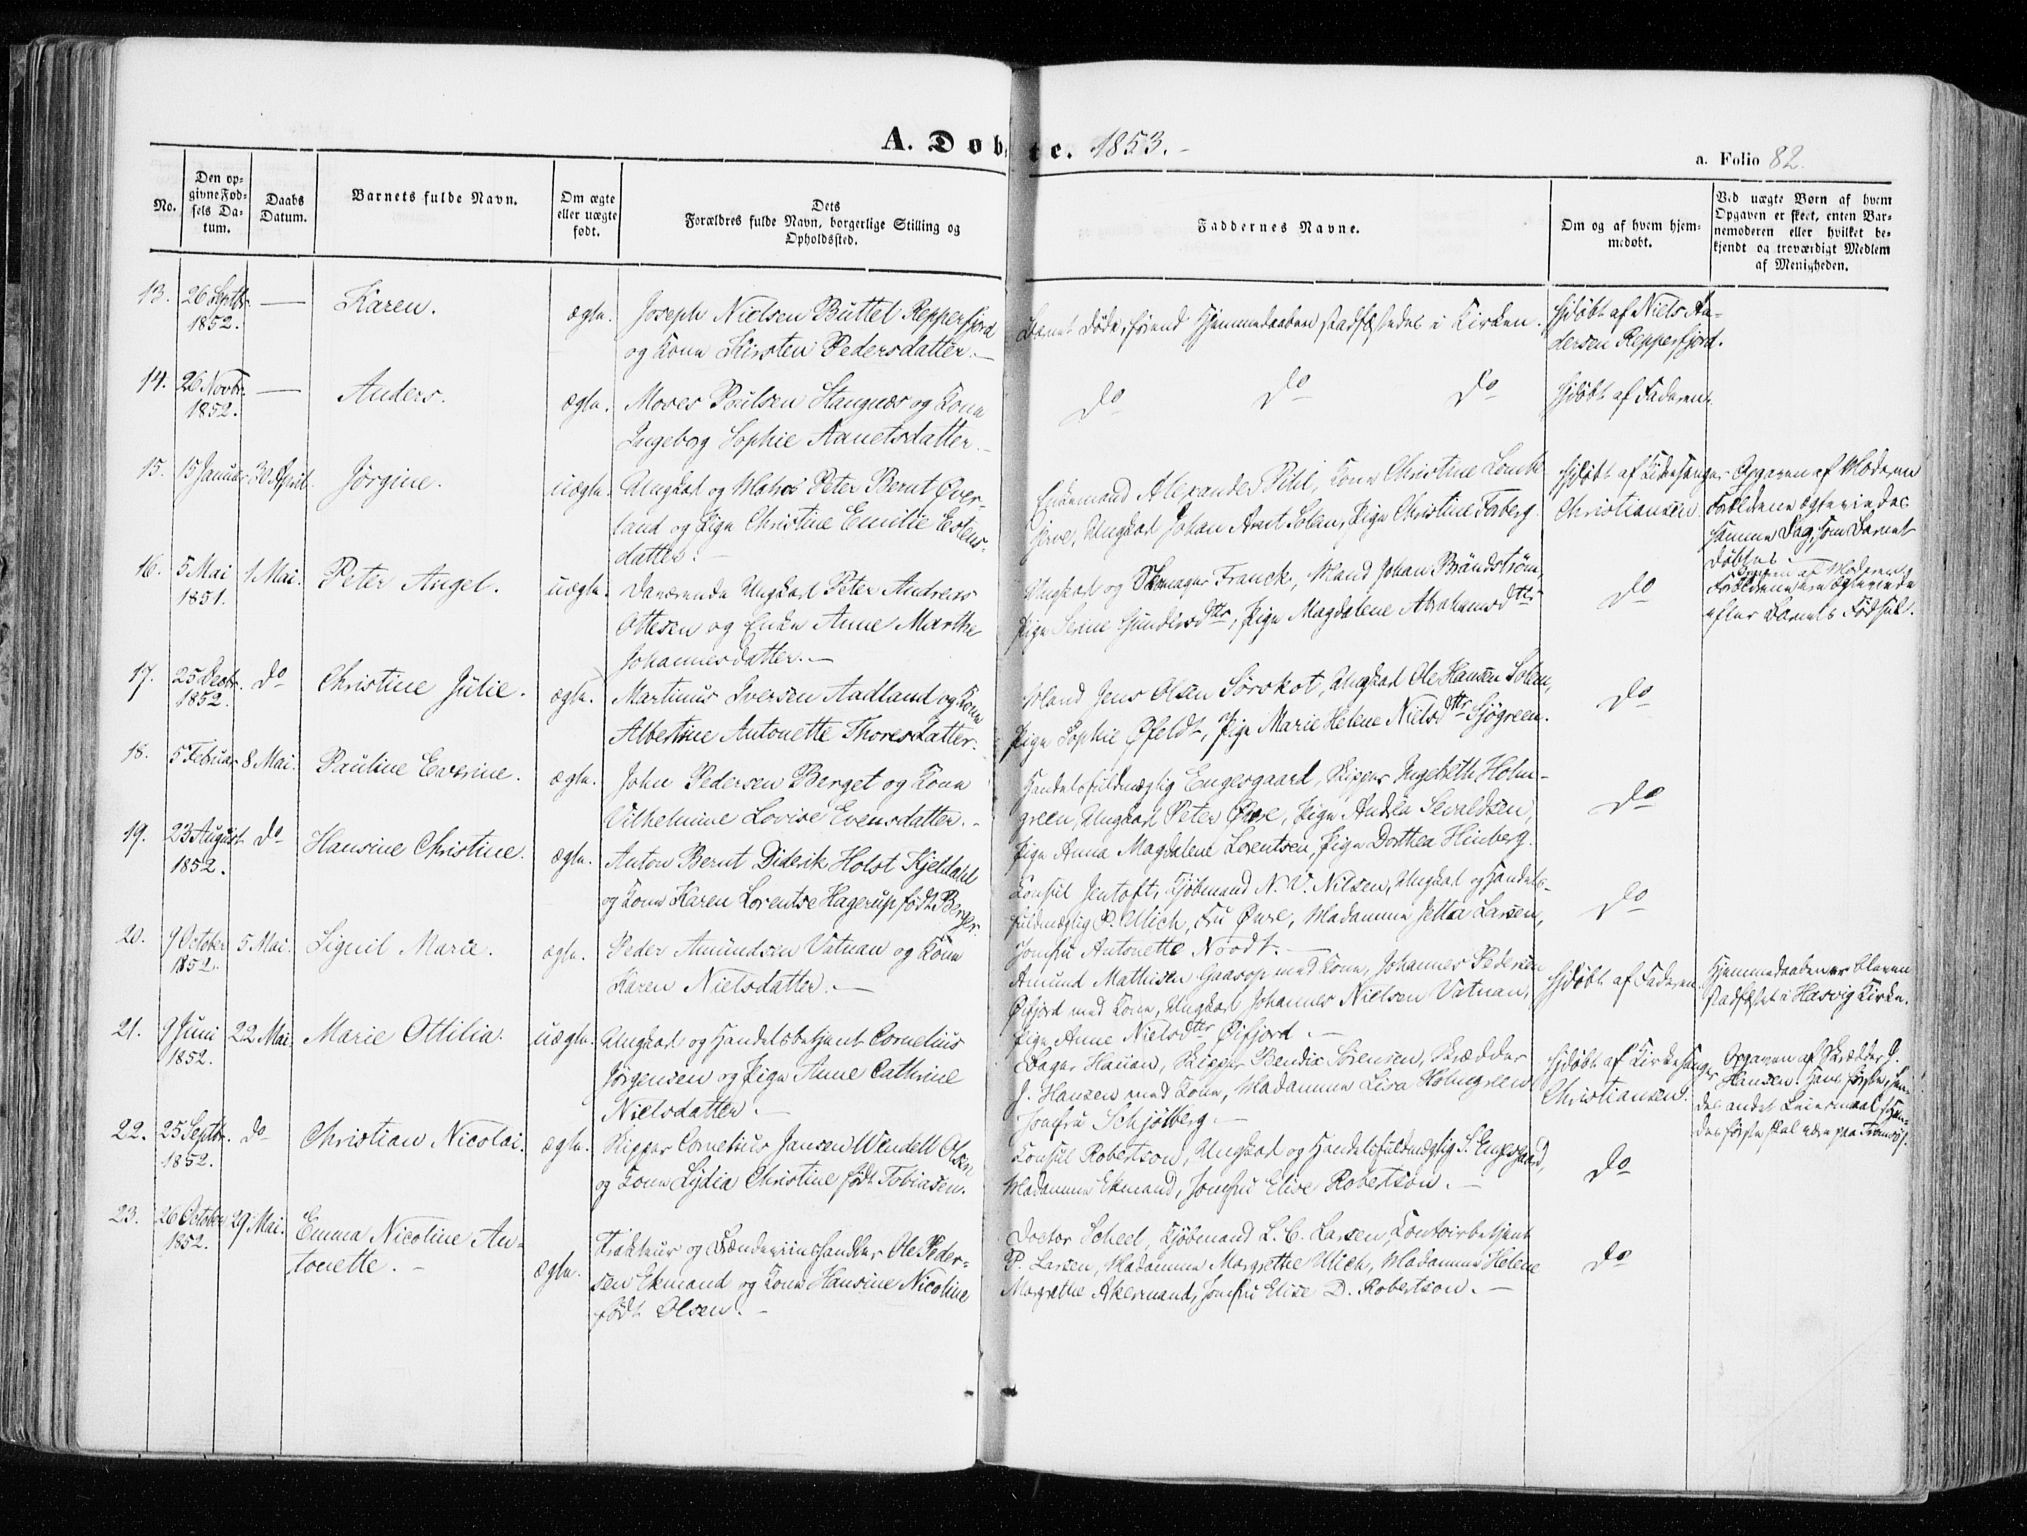 A. Døbte. 1853.
a. Folio 82.
No.
Den opgivne Fødsels Datum.
Daabs Datum.
Barnets fulde Navn.
Om ægte eller uægte født.
Dets Forældres fulde Navn, borgerlige Stilling og Opholdssted.
Faddernes Navne.
Om og af hvem hjemmedøbt.
Ved uægte Børn af hvem Opgaven er skeet, enten Barnemoderen eller hvilket bekjendt og troværdigt Medlem af Menigheden.
13. 26 Septbr. — Karen. ægte. Joseph Nielsen Buttel Repperfjord
1852. og Kone Kirsten Pedersdatter.—
Barnet døde, førend Hjemmedaaben stadfæstedes i Kirken. Hjdøbt af Niels An-
dersen Repperfjord.
14. 26 Novbr. — Anders. ægte. Moses Poulsen Stangnæs og Kone
1852. Ingeborg Sophie Aanetsdatter.—
Do Do Do Hjdøbt af Faderen.
15. 15 Januar 30 April. Jørgine. uægte. Ungkarl og Peter Bernt Over-
land og Pige Christine Emilie Estens-
datter.—
Enkemand Alexander Pihl, Kone Christine
Ungkarl Johan Arnt Solem, Pige Christine Foberg.
Hjdøbt af Kirkesanger
Christiansen.
Opgaven af Moderen
Forældrene ægteviedes
samme Dag, som Barnet
døbtes.—
16. 5 Mai 1 Mai. Peter Angel. uægte. Værende Ungkarl Peter Andreas
1851. Ottesen og Enke Anne Marthe
Johannesdatter.—
Ungkarl og Franck, Mand Johan Brändstrøm,
Pige Serine Gundersdtr, Pige Magdalene Abrahamsdtr
Do
Opgaven af Moderen,
Forældrene ere ægteviede
efter Barnets Fødsel.
17. 25 Decbr. Do Christine Julie. ægte. Martinus Iversen Aadland og Kone
1852. Albertine Antonette Thoresdatter.
Mand Jens Olsen Sørskot, Ungkarl Ole Hansen Solem,
Pige Sophie Øfeldt, Pige Marie Helene Nielsdtr Sjøgreen.
Do
18. 5 Februar 8 Mai. Pauline Everine. ægte. John Pedersen Berget og Kone
Vilhelmine Lovise Evensdatter.—
Handelsfuldmægtig Engesgaard, Skipper Ingebreth Holm-
green, Ungkarl Peter Øwre, Pige Andrea Sevaldsen,
Pige Anna Magdalene Lorentsen, Pige Dorthea Hinberg.
Do
19. 23 August Do Hansine Christine. ægte. Anton Bernt Diderik Holst Kjeldahl
1852. og Kone Karen Lorentse Hagerup født Berger.
Konsul Jentoft, Kjøbmand N. V. Nilsen, Ungkarl og Handels-
fuldmægtig P. Ulich, Fru Øwre, Madamme Jetta Larsen,
Jomfru Antonette Noodt.—
Do
20. 9 October 5 Mai. Signil Marie. ægte. Peder Amundsen Vatnan og Kone
1852. Karen Nielsdatter.—
Amund Mathisen Gaasop med Kone, Johannes Pedersen
Øifjord med Kone, Ungkarl Johannes Nielsen Vatnan,
Pige Anne Nielsdtr Øifjord.—
Hjdøbt af Faderen.
Hjemmedaaben er bleven
stadfæstet i Hasvig Kirke.
21. 9 Juni 22 Mai. Marie Ottilia. uægte. Ungkarl og Handelsbetjent Cornelius
1852. Jørgensen og Pige Anne Cathrine
Nielsdatter.—
Skipper Bendix Sørensen, Skrædder
J. Hansen med Kone, Madamme Lisa Holmgreen
Jomfru Schjølberg.—
Hjdøbt af Kirkesanger
Christiansen.
Opgaven af Skrædder J.
Hansen. Hans første, hen-
des andet Leiermaal. Hen-
des første skal være paa Tromsø.
22. 25 Septbr. Do Christian Nicolai. ægte. Skipper Cornelius Jansen Wendell Olsen
1852. og Kone Lydia Christine født Tobiasen.
Konsul Robertson, Ungkarl og Handelsfuldmægtig S. Engesgaard,
Madamme Ekmand, Jomfru Elise Robertson.—
Do
23. 26 October 29 Mai. Emma Nicoline An-
1852. tonette.— ægte. Trakteur og Høkerihandler Ole Peder-
sen Ekmand og Kone Hansine Nicoline
født Olsen.—
Doctor Scheel, Kjøbmand L. C. Larsen, Contoirbetjent
P. Larsen, Madamme Margrethe Ulich, Madamme Helene
Margrethe Akermand, Jomfru Elise D. Robertson.—
Do